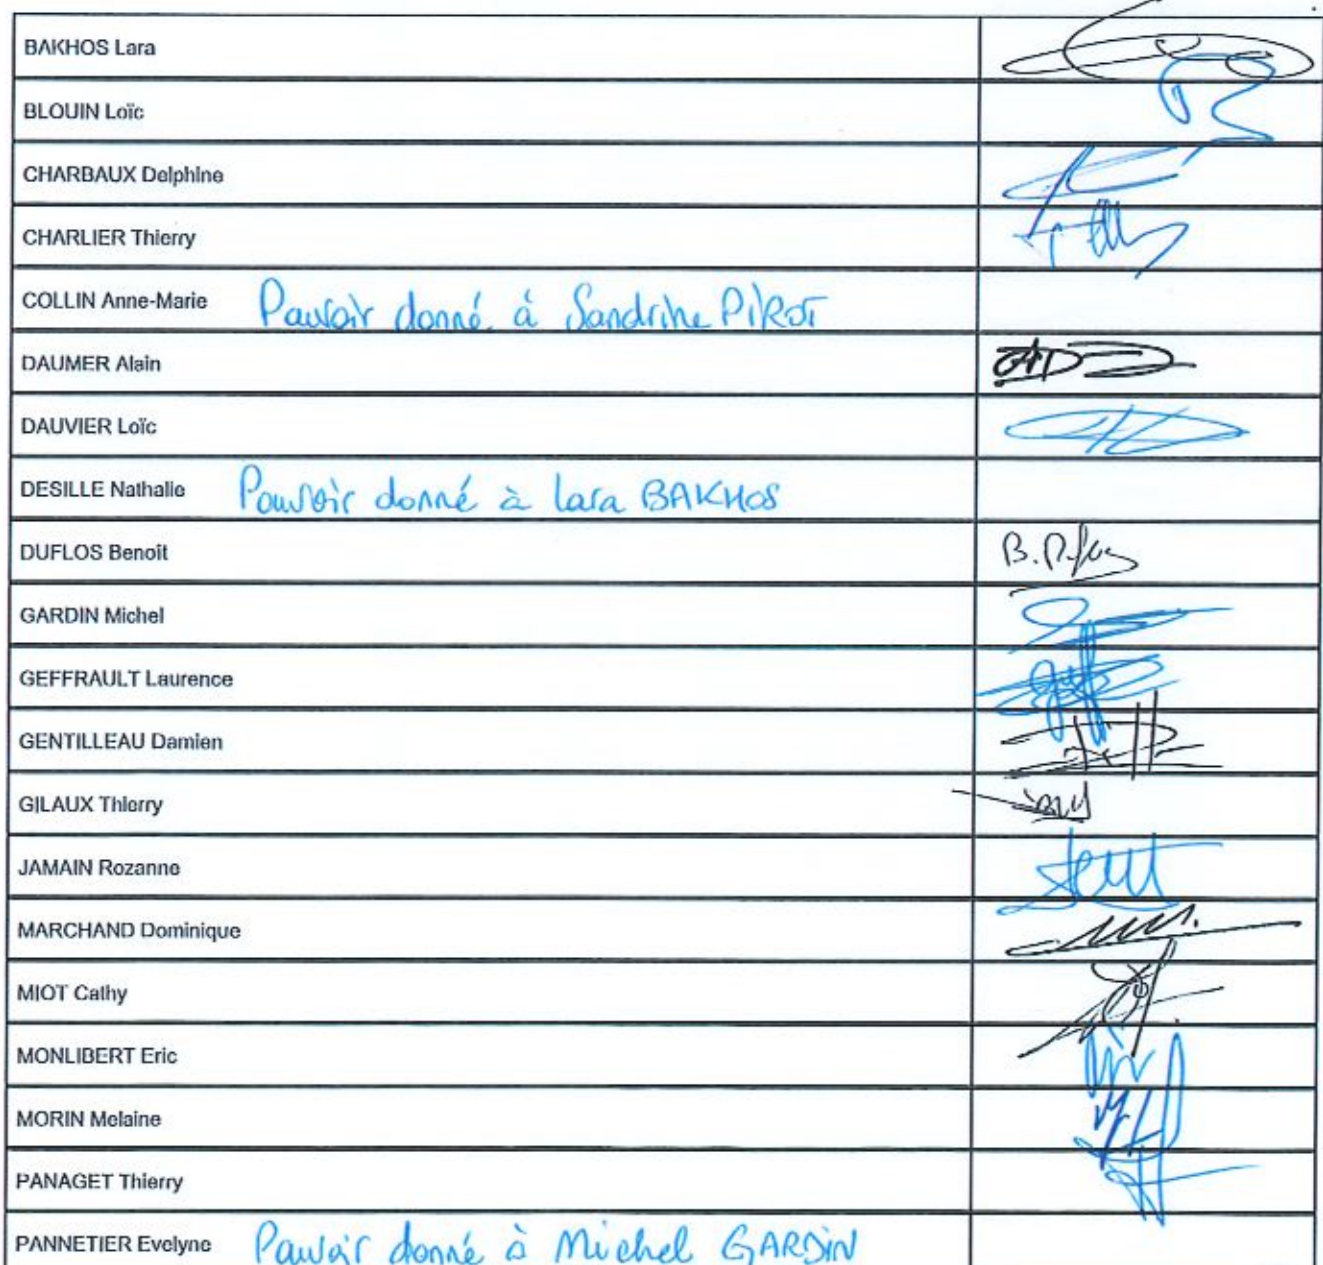 BAKHOS Lara
BLOUIN Loïc
CHARBAUX Delphine
CHARLIER Thierry
COLLIN Anne-Marie Pouvoir donné à Sandrine PIROT
DAUMER Alain
DAUVIER Loïc
DESILLE Nathalie Pouvoir donné à Lara BAKHOS
DUFLOS Benoît
GARDIN Michel
GEFFRAULT Laurence
GENTILLEAU Damien
GILAUX Thierry
JAMAIN Rozanne
MARCHAND Dominique
MIOT Cathy
MONLIBERT Eric
MORIN Melaine
PANAGET Thierry
PANNETIER Evelyne Pouvoir donné à Michel GARDIN